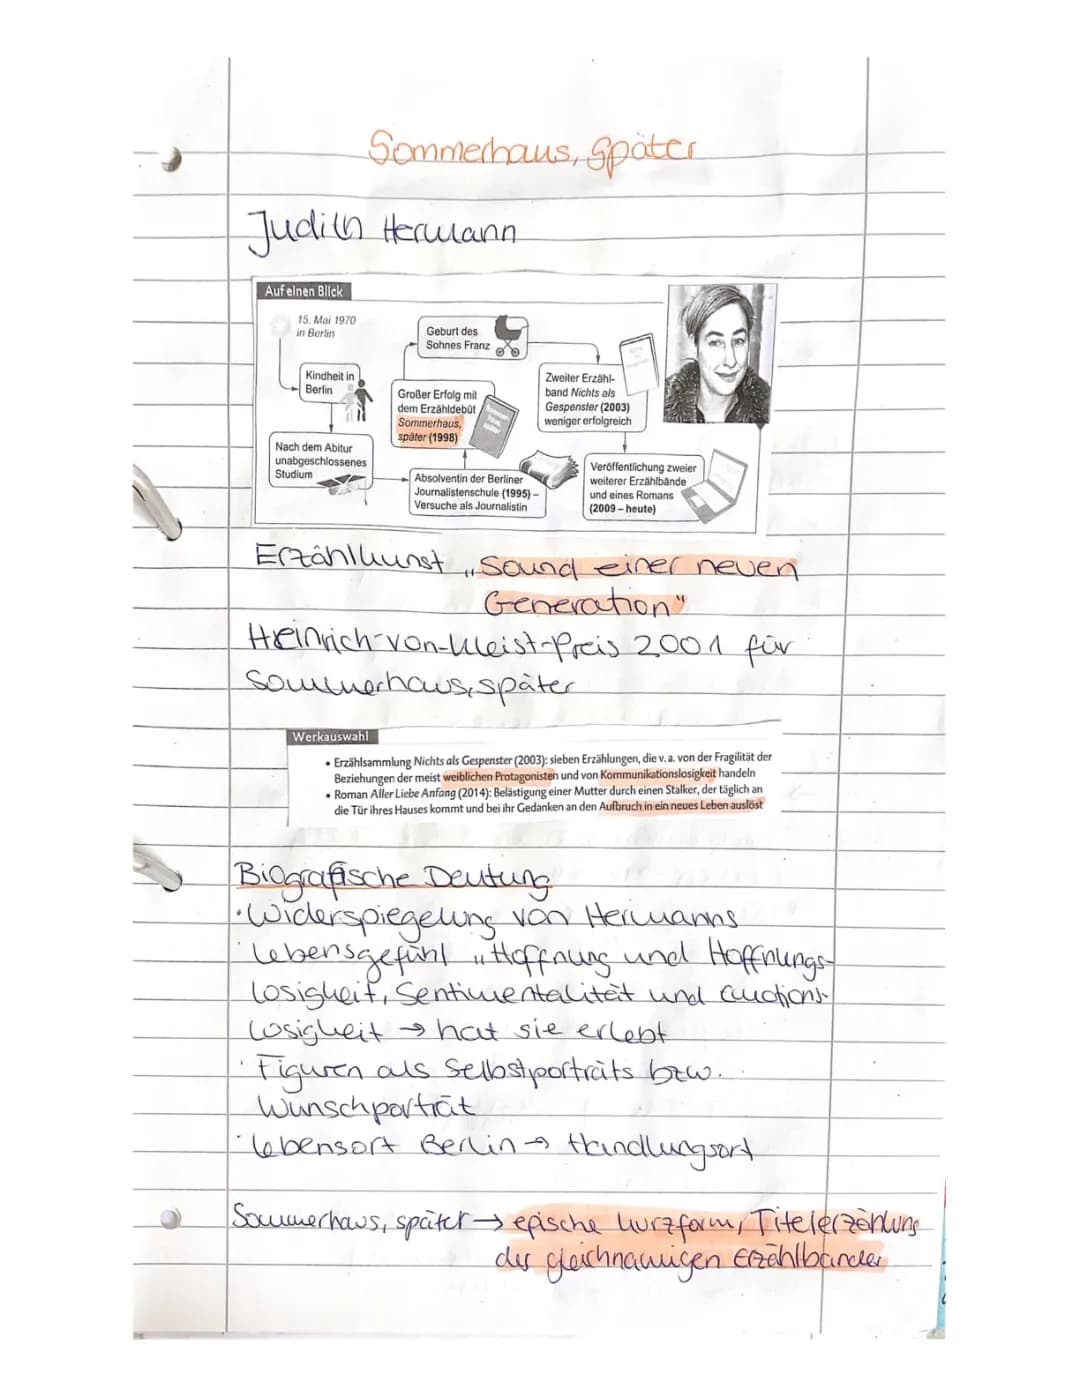 Sommerhaus, später
Judith Hermann
Auf einen Blick
15. Mai 1970
in Berlin
Kindheit in
Berlin
Nach dem Abitur
unabgeschlossenes
Studium
Absolventin der Berliner
Journalistenschule (1995) –
Versuche als Journalistin
Großer Erfolg mit
dem Erzähldebüt
Sommerhaus,
später (1998)
Geburt des
Sohnes Franz
Zweiter Erzähl-
band Nichts als
Gespenster (2003)
weniger erfolgreich
Veröffentlichung zweier
weiterer Erzählbände
und eines Romans
(2009 – heute)
Erzählkunst „Sound einer neuen
Generation"
Heinrich-von-Kleist-Preis 2001 für
Sommerhaus, später
Werkauswahl
• Erzählsammlung Nichts als Gespenster (2003): sieben Erzählungen, die v. a. von der Fragilität der
Beziehungen der meist weiblichen Protagonisten und von Kommunikationslosigkeit handeln
• Roman Aller Liebe Anfang (2014): Belästigung einer Mutter durch einen Stalker, der täglich an
die Tür ihres Hauses kommt und bei ihr Gedanken an den Aufbruch in ein neues Leben auslöst
Biografische Deutung
· Widerspiegelung von Hermanns
Lebensgefühl „Hoffnung und Hoffnungs-
losigkeit, Sentimentalität und Emotions-
losigkeit → hat sie erlebt
· Figuren als Selbstporträts bzw.
Wunschporträt
· Lebensort Berlin → Handlungsort
Sommerhaus, später → epische Kurzform, Titelerzählung
des gleichnamigen Erzählbandes